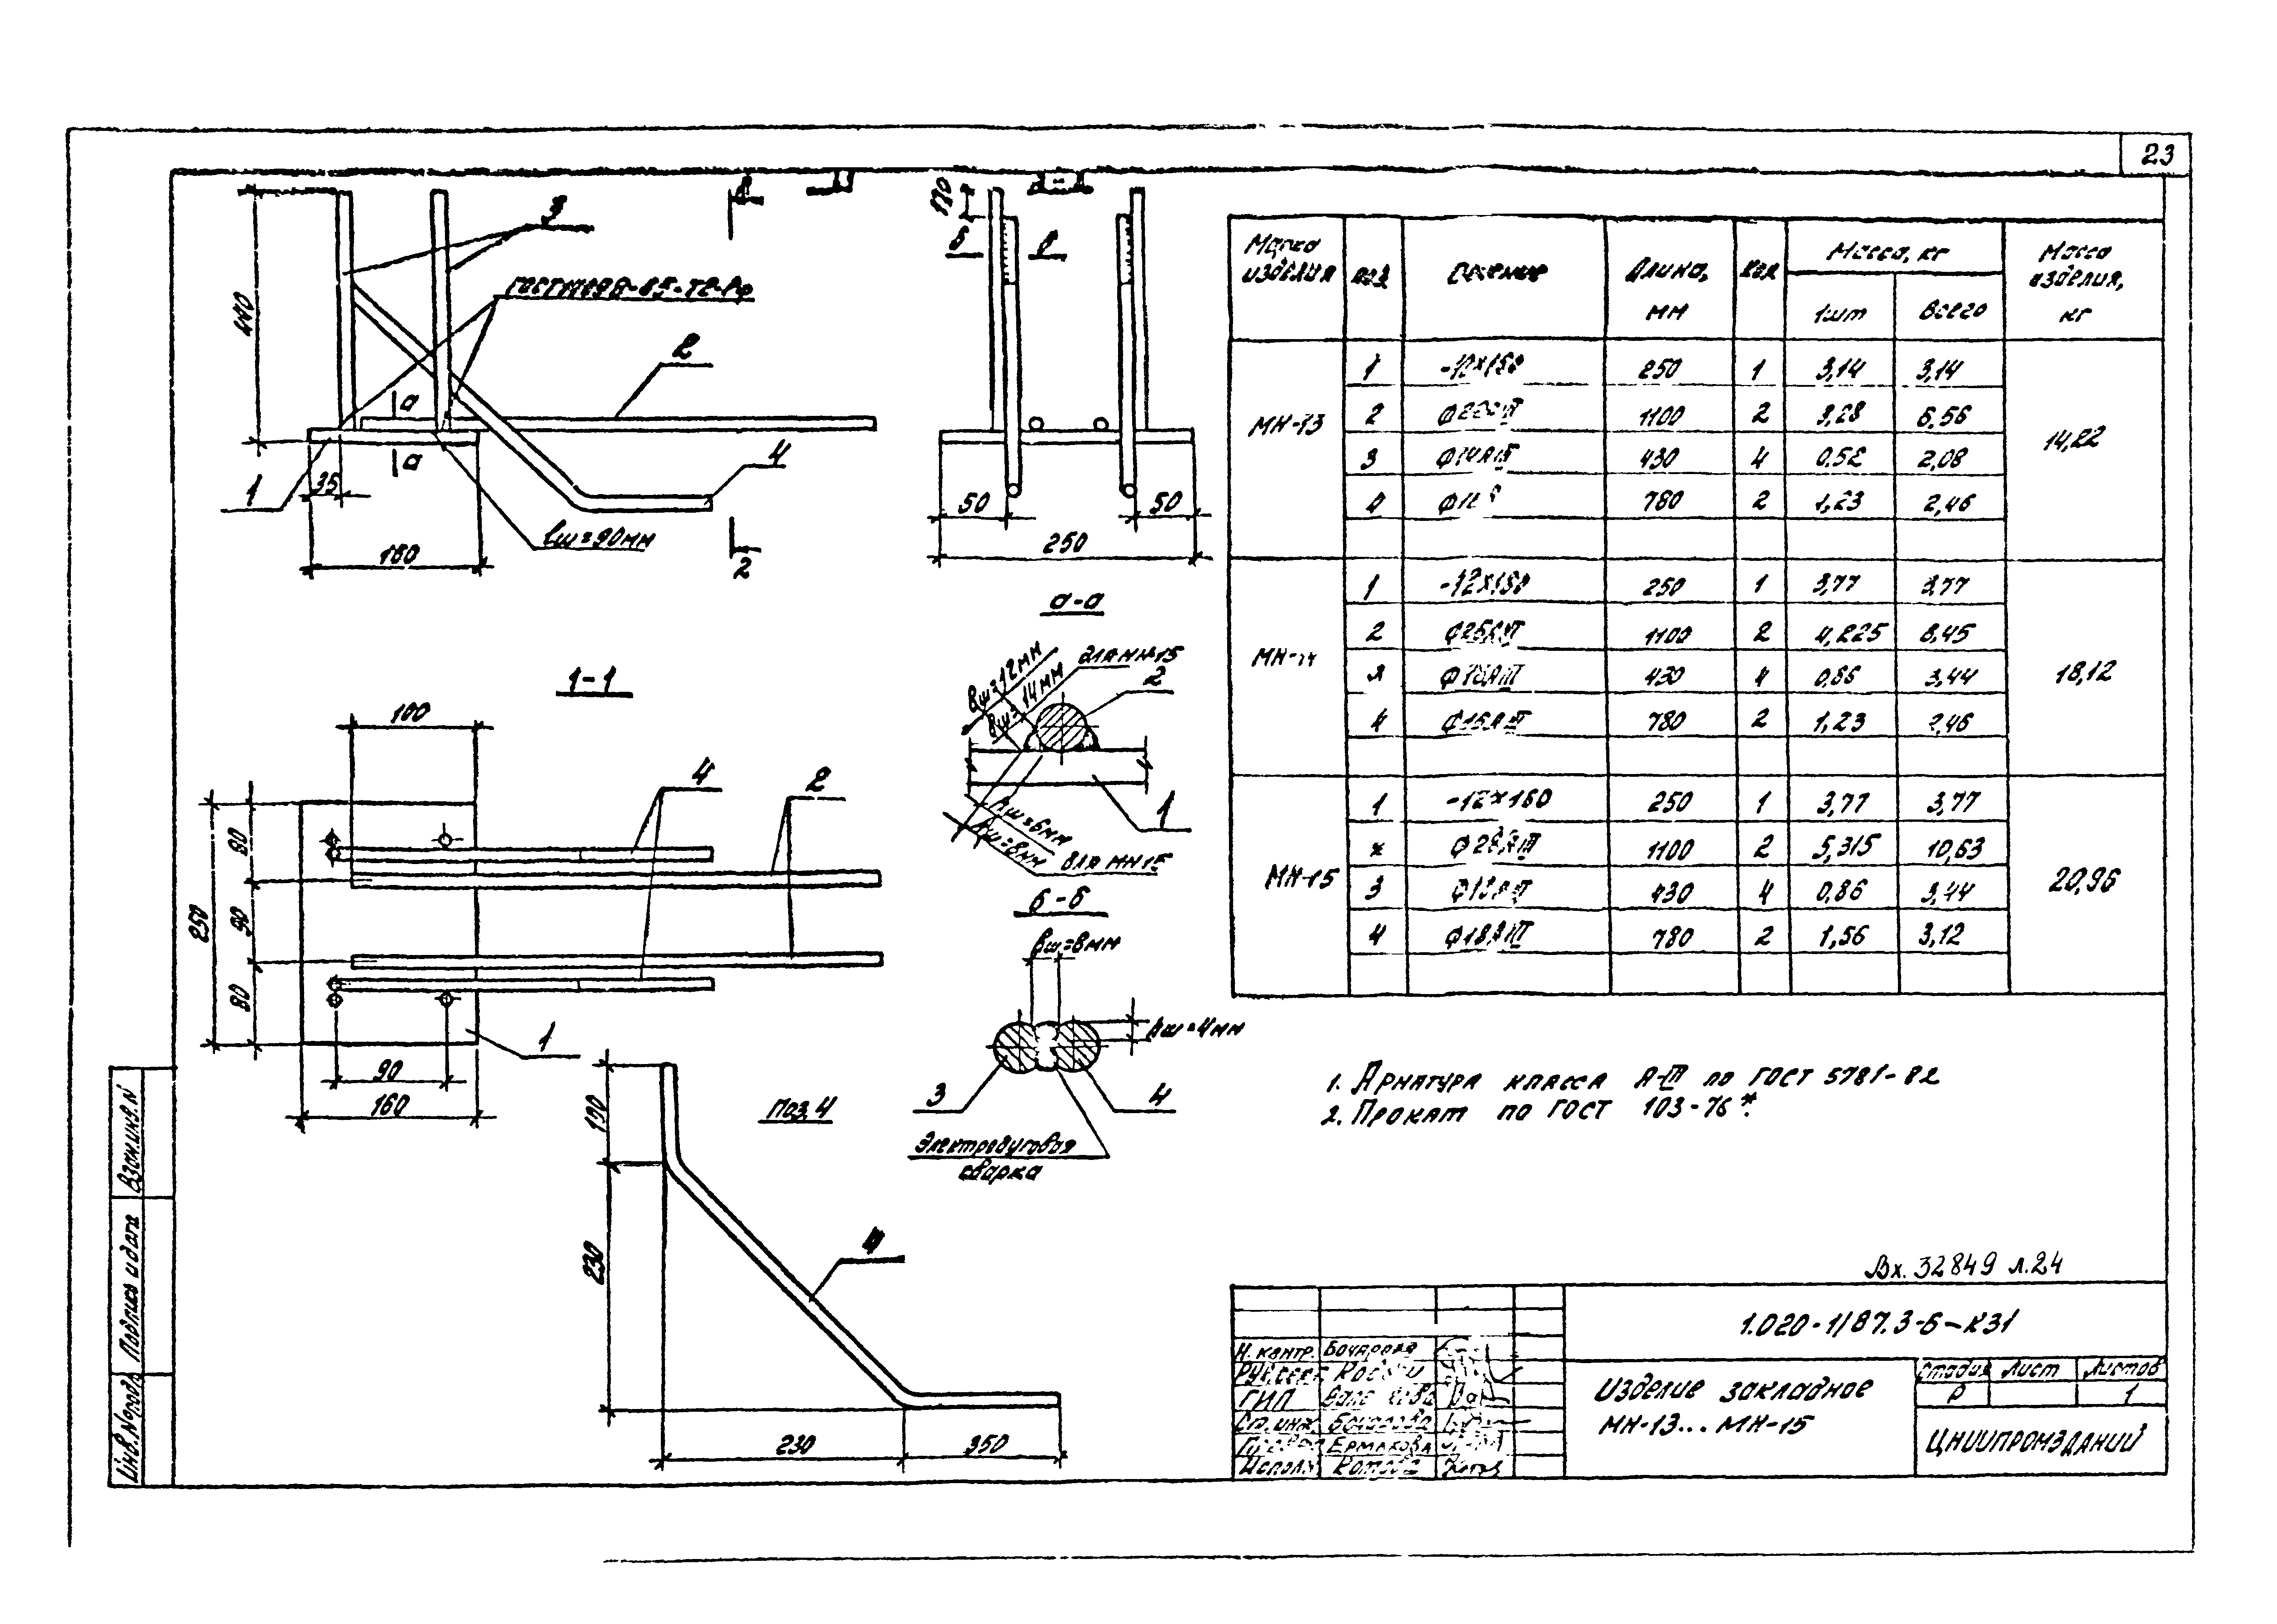 23
3
ГОСТ14098-85-Т2-Рф
440
2
а
а
1
35
4
ℓш=90мм
160
2
120
б
50
50
250
а-а
bш=12мм
bш=14мм
для МН15
2
1
hш=6мм
hш=8мм
для МН15
б-б
bш=8мм
hш=4мм
3
4
Электродуговая
сварка
1-1
100
4
2
80
90
80
250
90
160
1
Поз.4
190
230
4
230
350
Марка изделия | поз | Сечение | Длина, мм | кол | Масса, кг | Масса изделия, кг
1шт | Всего
МН-13 | 14,22
1 | 250 | 1 | 3,14 | 3,14
2 | 1100 | 2 | 3,28 | 6,56
3 | ф14АIII | 430 | 4 | 0,52 | 2,08
4 | 780 | 2 | 1,23 | 2,46
МН-14 | 18,12
1 | 250 | 1 | 3,77 | 3,77
2 | 1100 | 2 | 4,225 | 8,45
ф18АIII | 430 | 4 | 0,86 | 3,44
4 | ф16АIII | 780 | 2 | 1,23 | 2,46
МН-15 | 20,96
1 | -12×160 | 250 | 1 | 3,77 | 3,77
ф28АIII | 1100 | 2 | 5,315 | 10,63
3 | ф18АIII | 430 | 4 | 0,86 | 3,44
4 | ф18АIII | 780 | 2 | 1,56 | 3,12
1. Арматура класса А-III по ГОСТ 5781-82
2. Прокат по ГОСТ 103-76*.
Вх. 32849 л.24
1.020-1/87.3-6-КЗ1
Н. контр. Бочарова
Рук.сект
ГИП
Ст. инж. Бочарова
Ермакова
Исполн Котова
Изделие закладное
МН-13...МН-15
Стадия Лист Листов
Р 1
ЦНИИПРОМЗДАНИЙ
Взам.инв.N
Подпись и дата
Инв.Nподл